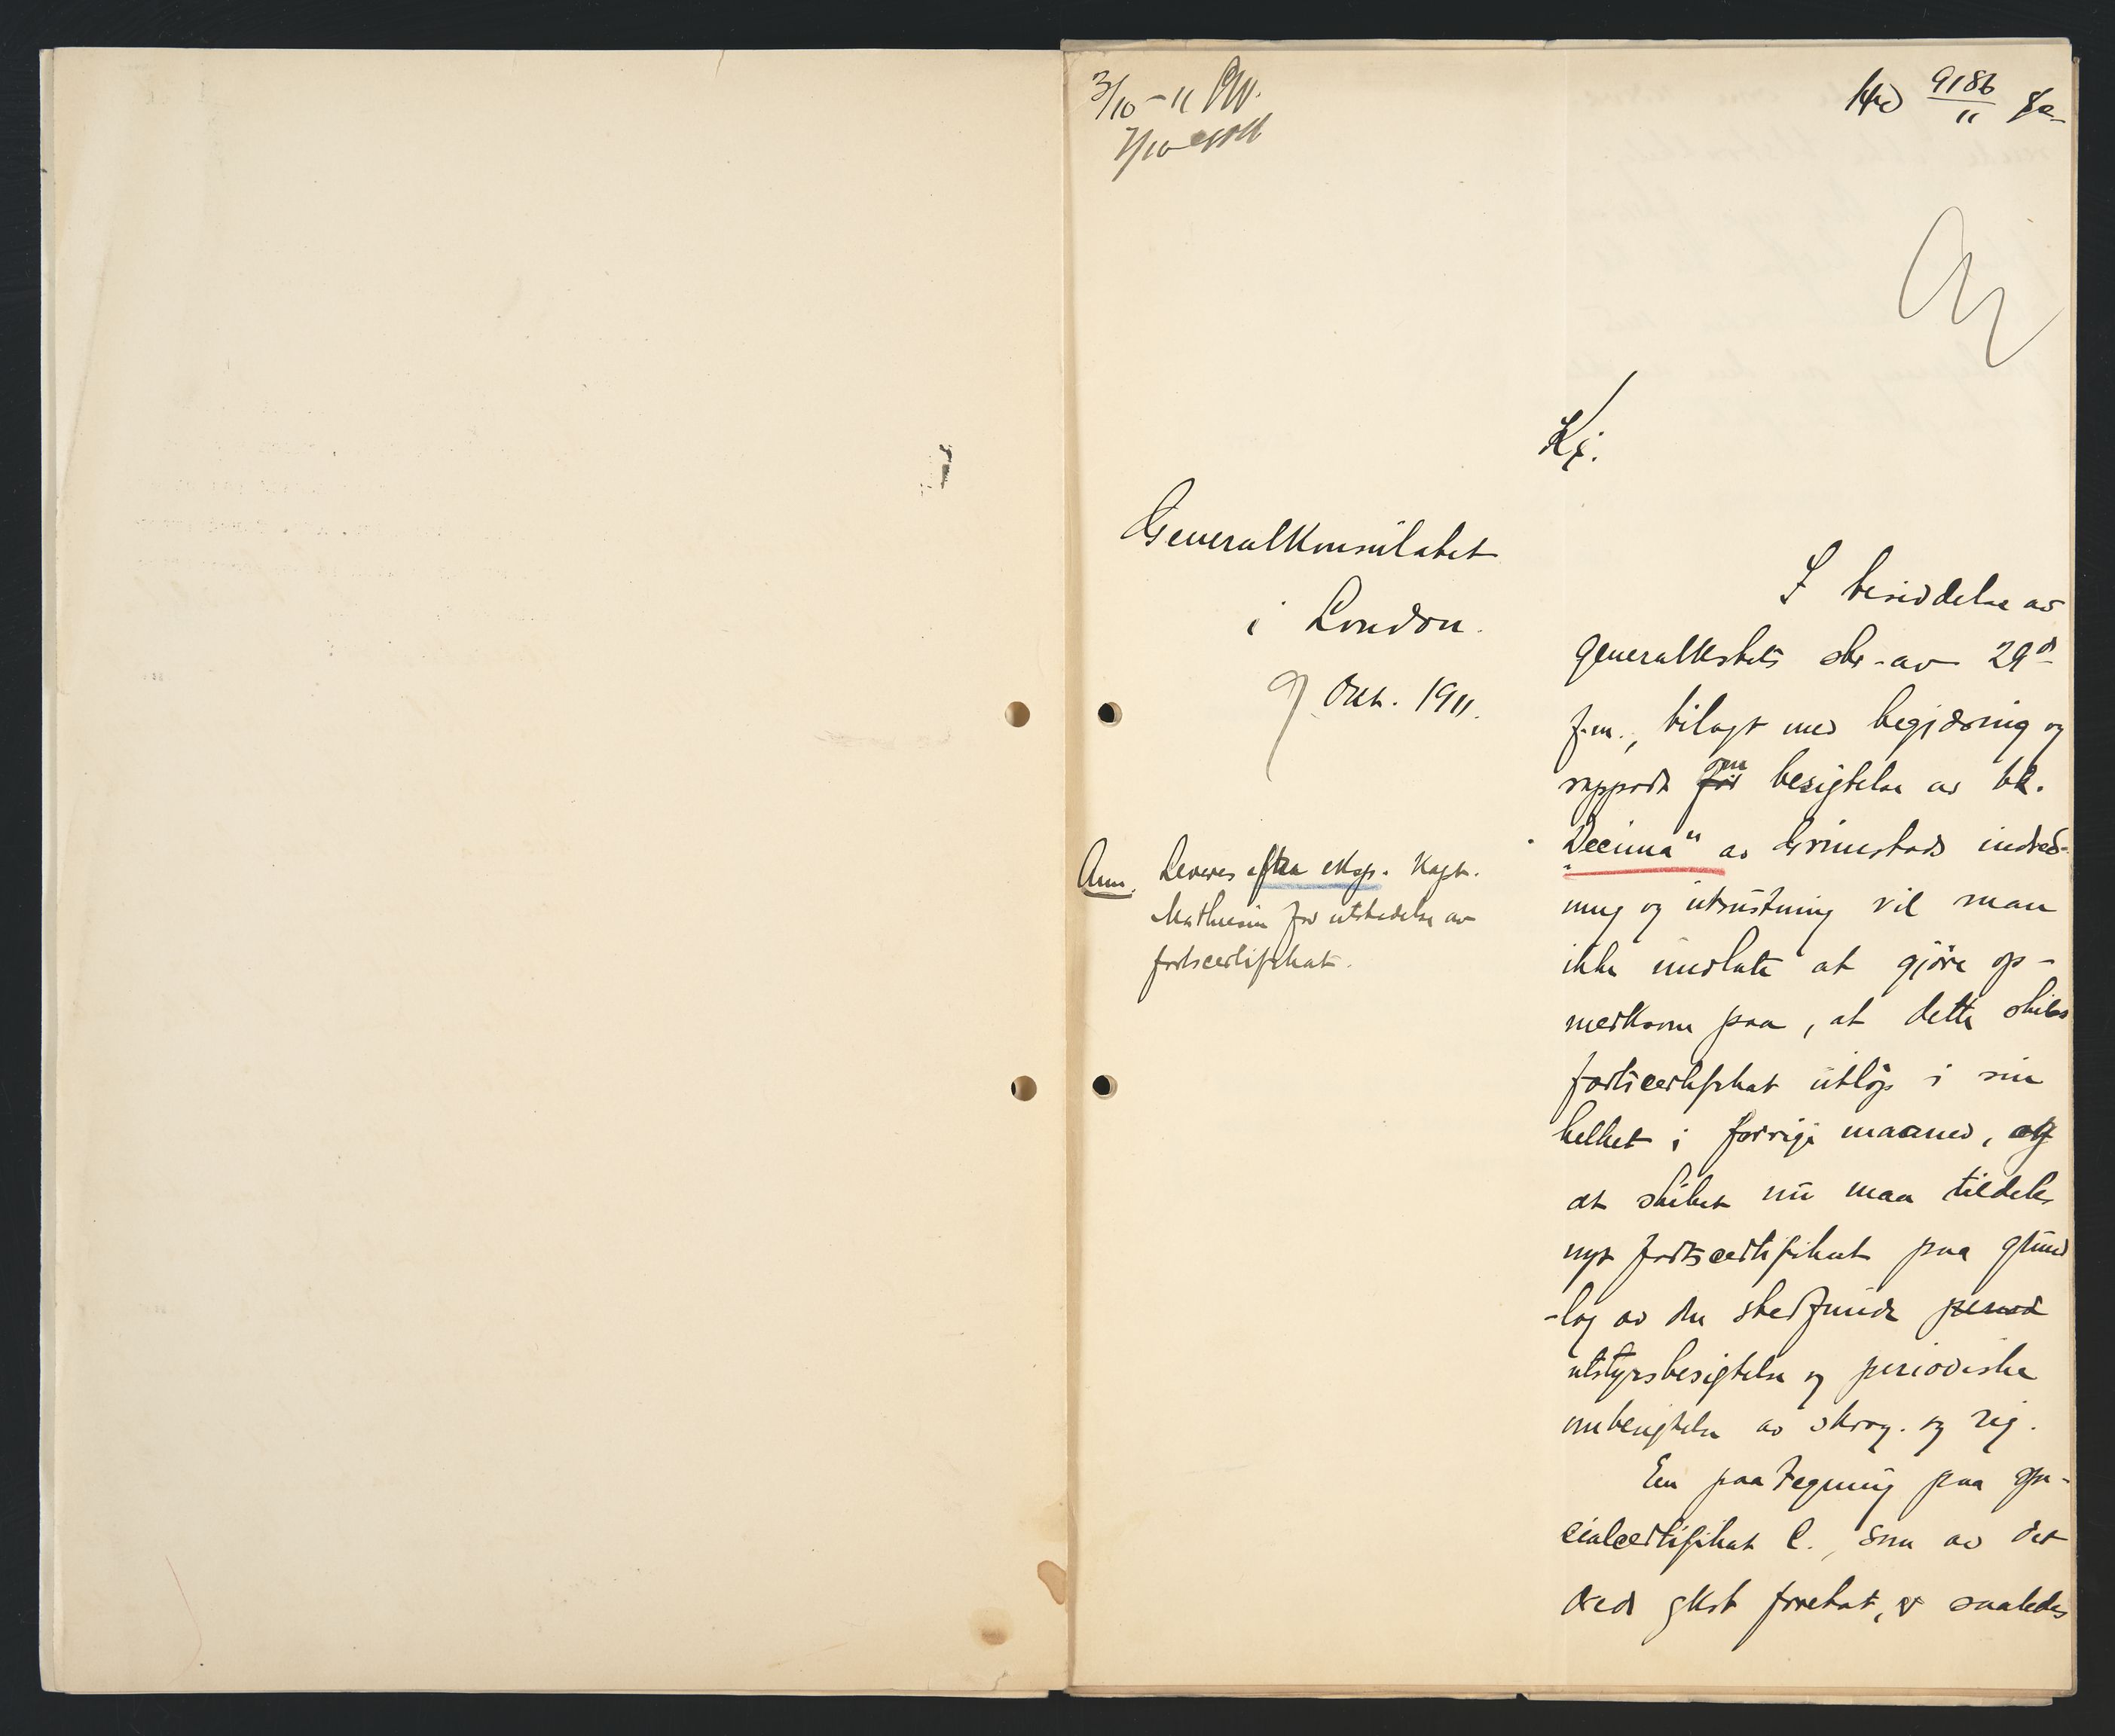 3/10-11
7/10
9186/11
Kj.
Generalkonsulatet
i London.
9 Okt. 1911.
Anm. Leveres efter eksp. Kapt.
Mathiesen for utstedelse av
fartscertifikat.
I besiddelse av
generalkstets skr. av 29de
f.m., bilagt med begjæring og
rapport for om besigtelse av bk.
"Decima" av Grimstads indred-
ning og utrustning vil man
ikke undlate at gjøre op-
merksom paa, at dette skibs
fartscertifikat utløp i sin
helhet i forrige maaned, og
at skibet nu maa tildeles
nyt fartscertifikat paa grund
-lag av den stedfundne period
utstyrsbesigtelse og periodiske
ombesigtelse av skrog. og rig.
En paategning paa spe-
cialcertifikat C., som av det
dred gkst foretat, er saaledes